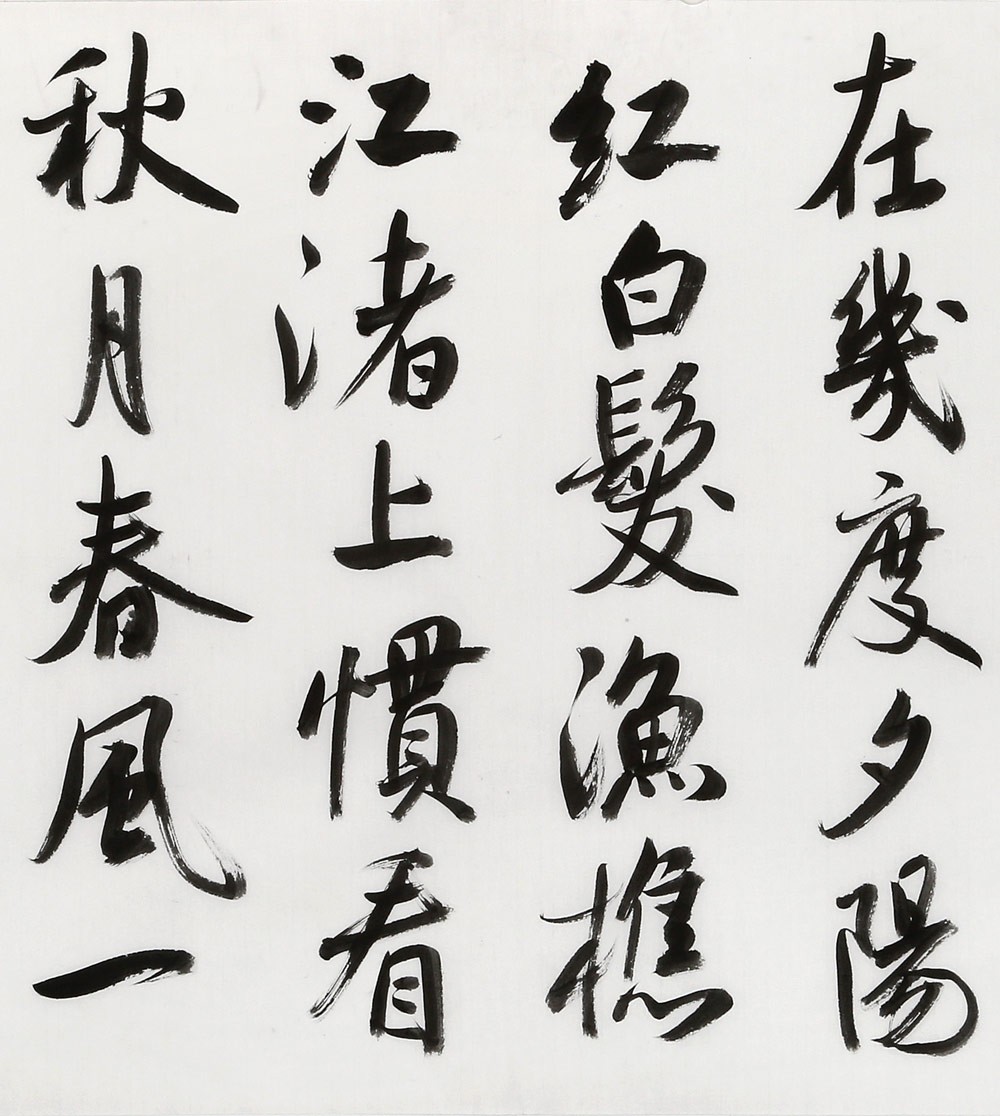 在幾度夕陽
紅白髮漁樵
江渚上慣看
秋月春風一